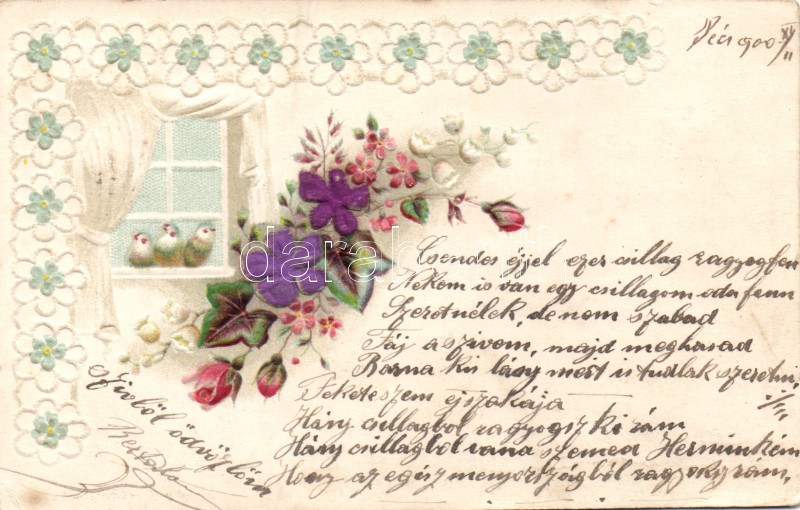 Pécs 900 XI/11
Csendes éjjel ezer csillag ragyog fen
Nekem is van egy csillagom oda fenn
Szeretnélek, de nem szabad
Fáj a szivom, majd meghasad
Barna kis lány mért is tudlak szeretni.
Feketeszem éjszakája
Hány csillagból ragyogsz ki rám
Hány csillagból van a szemed Herminkém
Hogy az egész menyországból ragyogsz rám.
Szivből üdvözlöm
darabanth